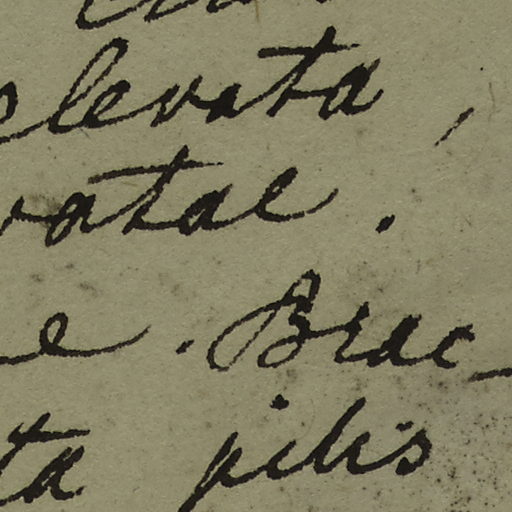 elevata,
vatae.
e. Brac-
ta pilis